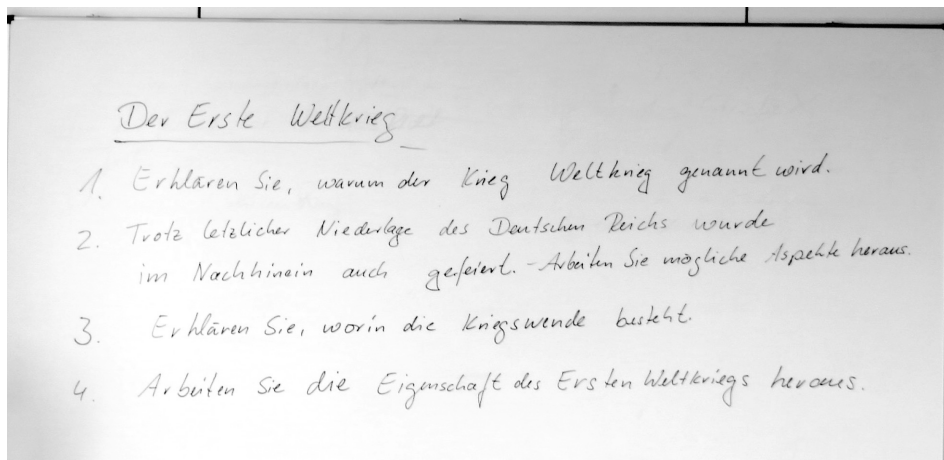 Der Erste Weltkrieg
1. Erklären Sie, warum der Krieg Weltkrieg genannt wird.
2. Trotz letzlicher Niederlage des Deutschen Reichs wurde
im Nachhinein auch gefeiert. - Arbeiten Sie mögliche Aspekte heraus.
3. Erklären Sie, worin die Kriegswende besteht.
4. Arbeiten Sie die Eigenschaft des Ersten Weltkriegs heraus.